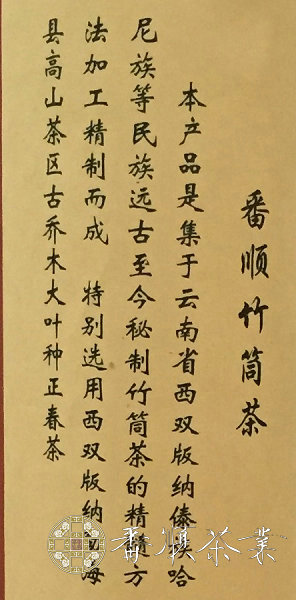 番顺竹筒茶
本产品是集于云南省西双版纳傣族哈
尼族等民族远古至今秘制竹筒茶的精髓方
法加工精制而成 特别选用西双版纳勐海
县高山茶区古乔木大叶种正春茶
番顺茶業